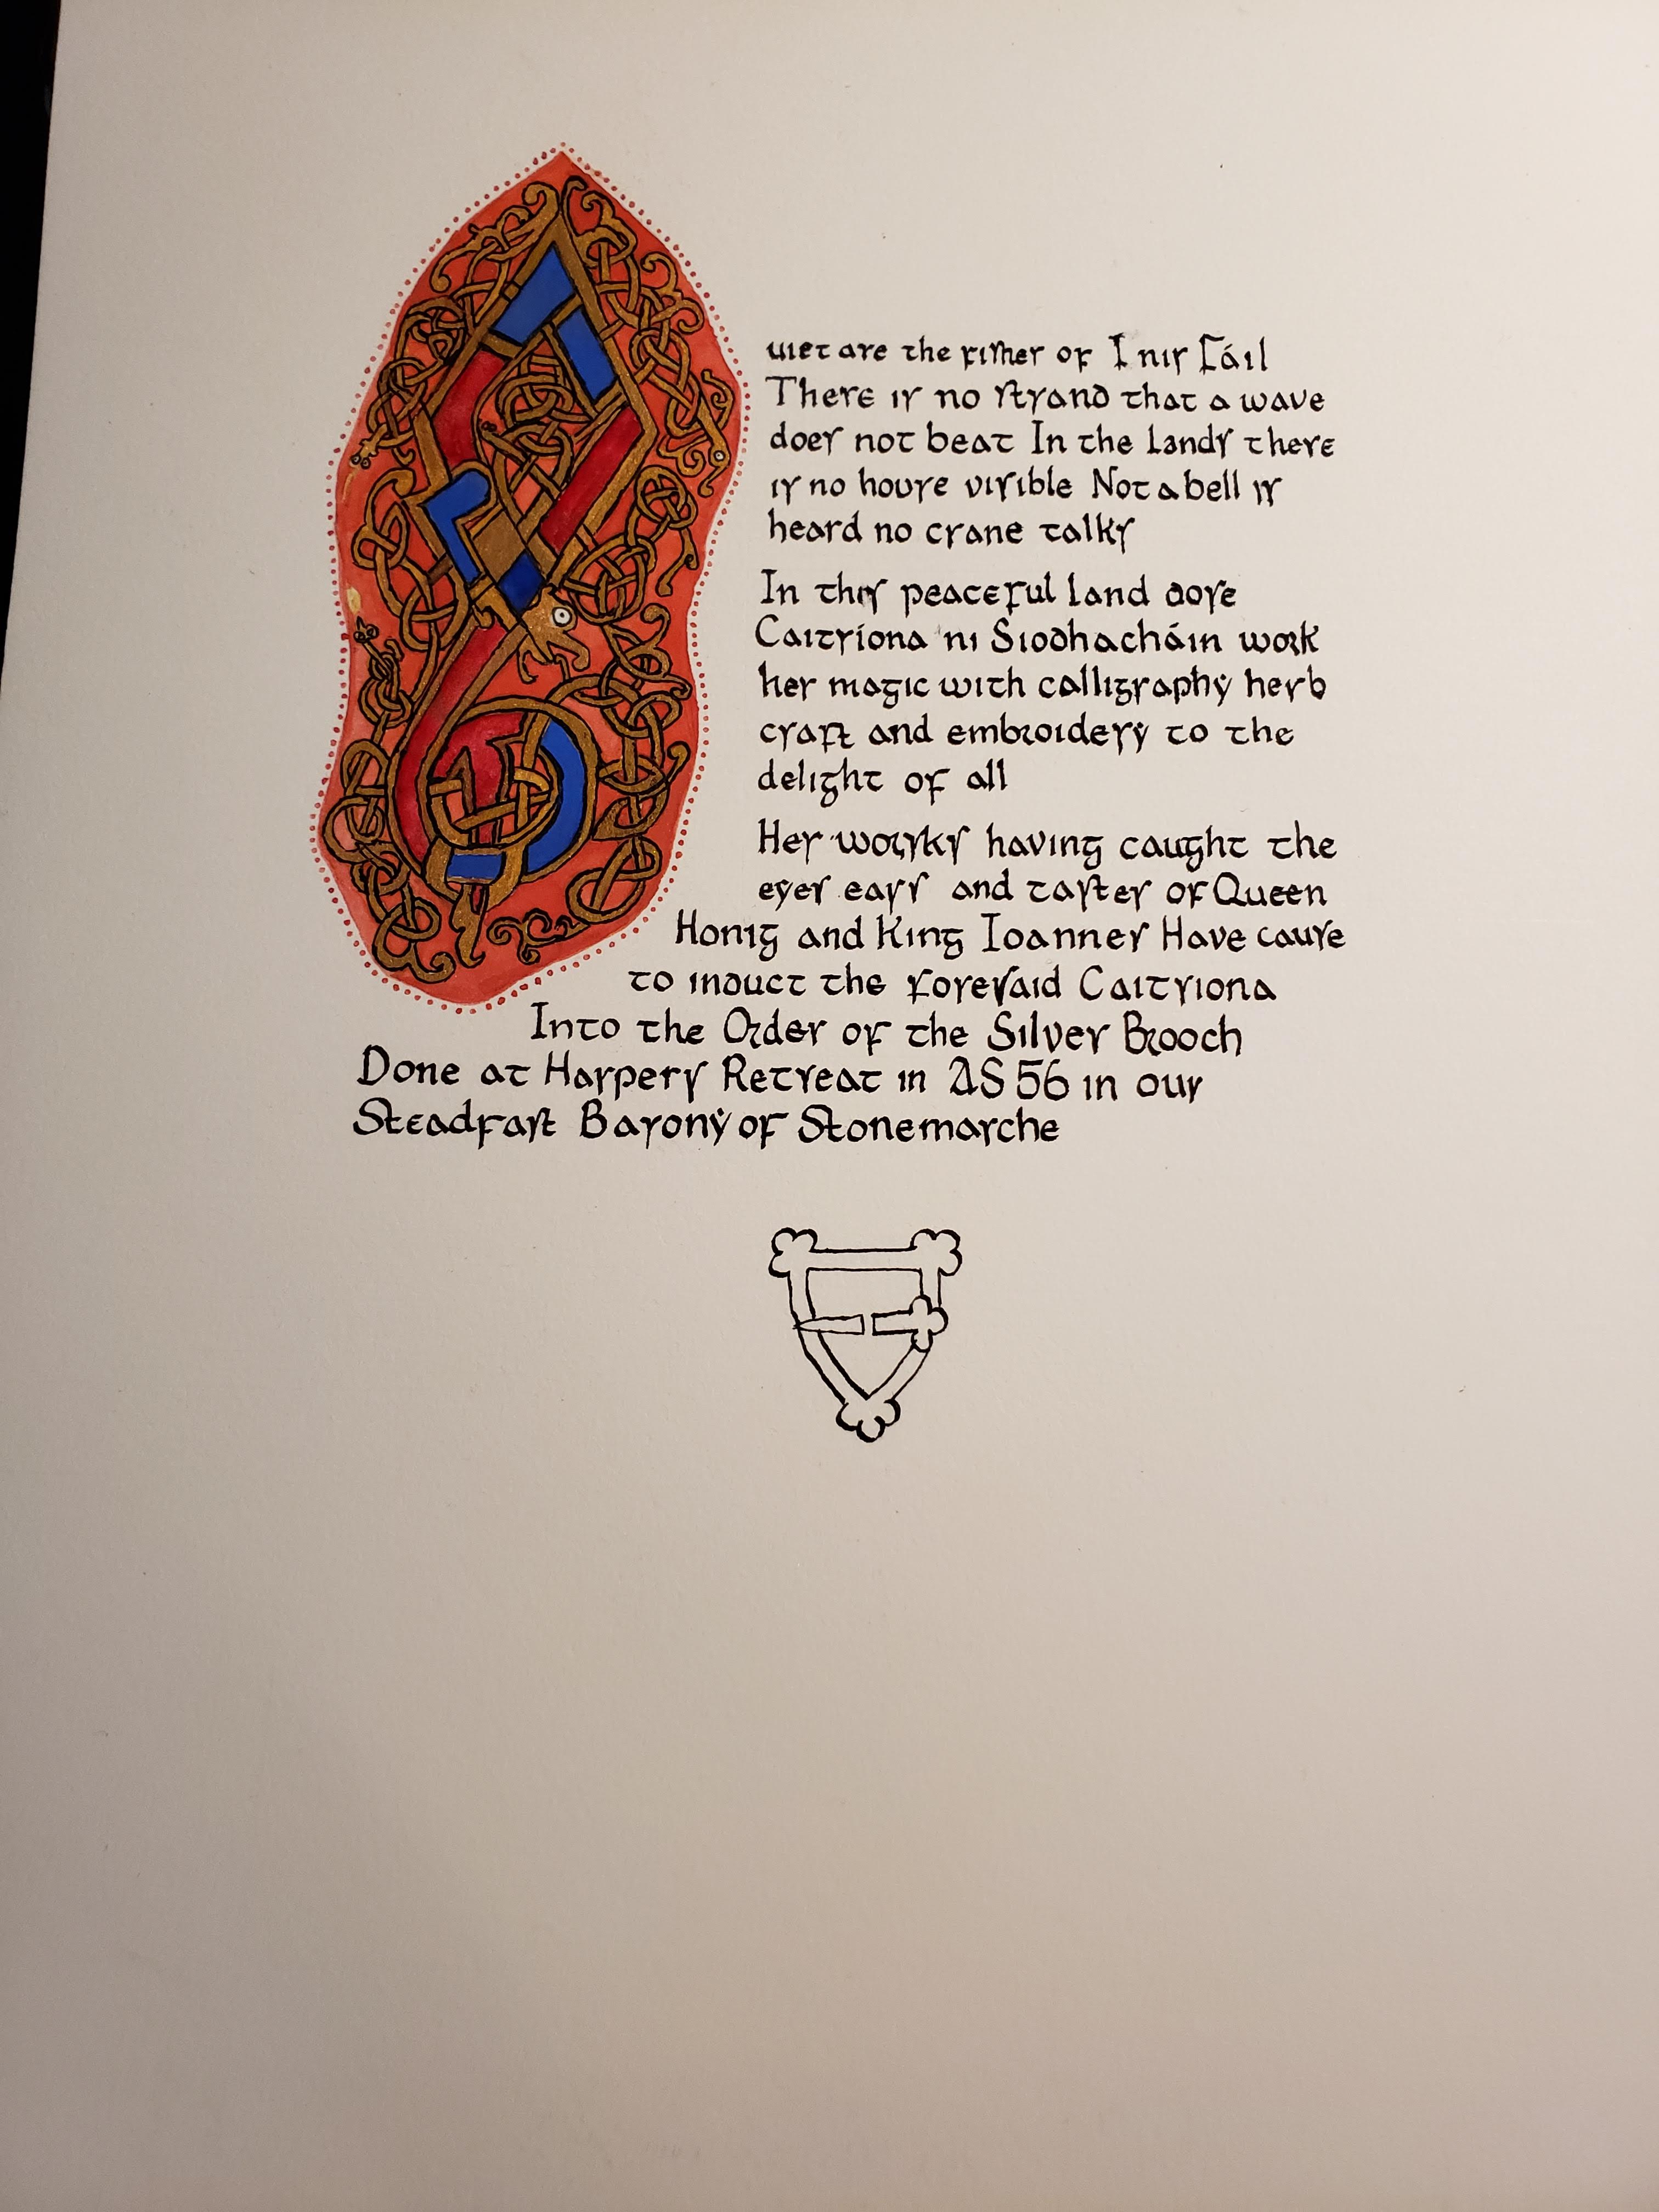 Quiet are the fisher of Inis Fáil
There is no strand that a wave
does not beat In the Lands there
is no house visible Not a bell is
heard no crane talks
In this peaceful land dose
Caitríona ni Siodhacháin work
her magic with calligraphy herb
craft and embroidery to the
delight of all
Her worrks having caught the
eyes ears and tastes of Queen
Honig and King Ioannes Have cause
to induct the foresaid Caitriona
Into the Order of the Silver Brooch
Done at Harpers Retreat in AS 56 in our
Steadfast Barony of Stonemarche